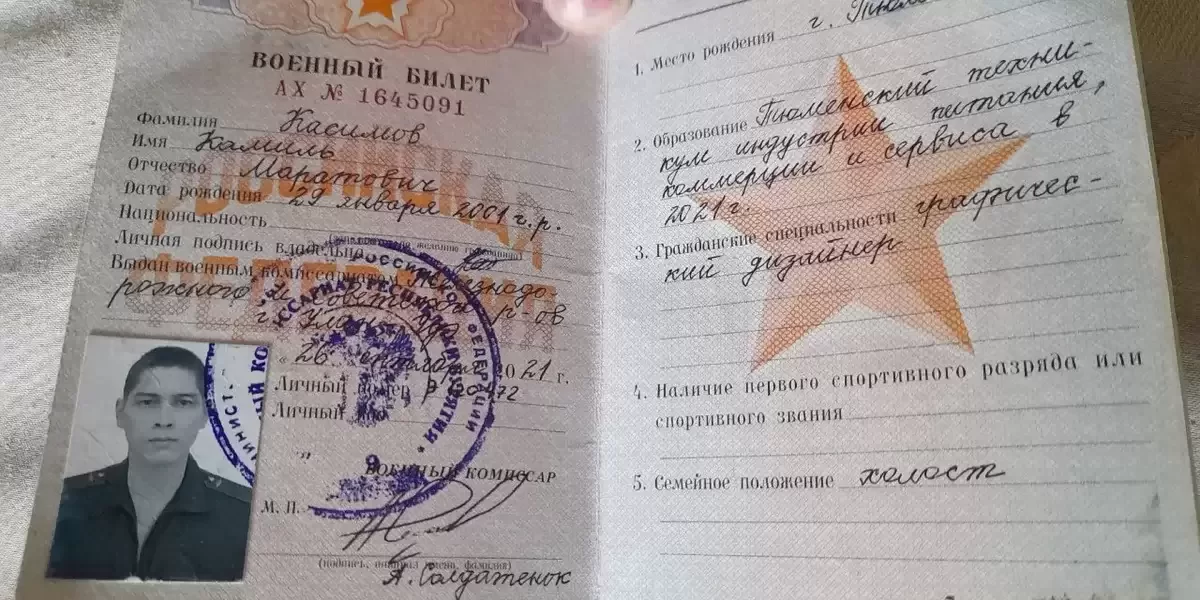 ВОЕННЫЙ БИЛЕТ
АХ № 1645091
Фамилия Касимов
Имя Камиль
Отчество Маратович
Дата рождения 29 января 2001 г.р.
Национальность
Личная подпись владельца
Выдан военным комиссариатом Железнодо-
рожного и Советского р-ов
г. Улан-Удэ
„26" октября 2021 г.
Личный номер
Личный код
ВОЕННЫЙ КОМИССАР
М. П.
(подпись, инициал имени, фамилия)
А. Солдатенок
1. Место рождения г. Тюме
2. Образование Тюменский техни-
кум индустрии питания,
коммерции и сервиса в
2021 г.
3. Гражданские специальности графичес-
кий дизайнер
4. Наличие первого спортивного разряда или
спортивного звания
5. Семейное положение холост